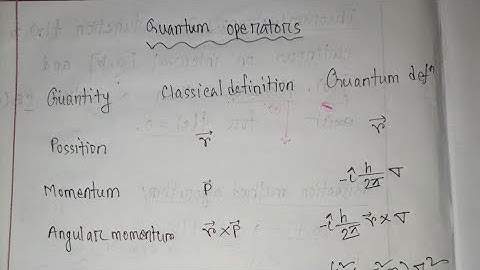 Quantum operators
Quantity Classical definition Quantum defn
Possition r⃗ r⃗
Momentum P⃗ -î h/2π ∇
Angular momentum r⃗ × P⃗ -î h/2π r⃗ × ∇